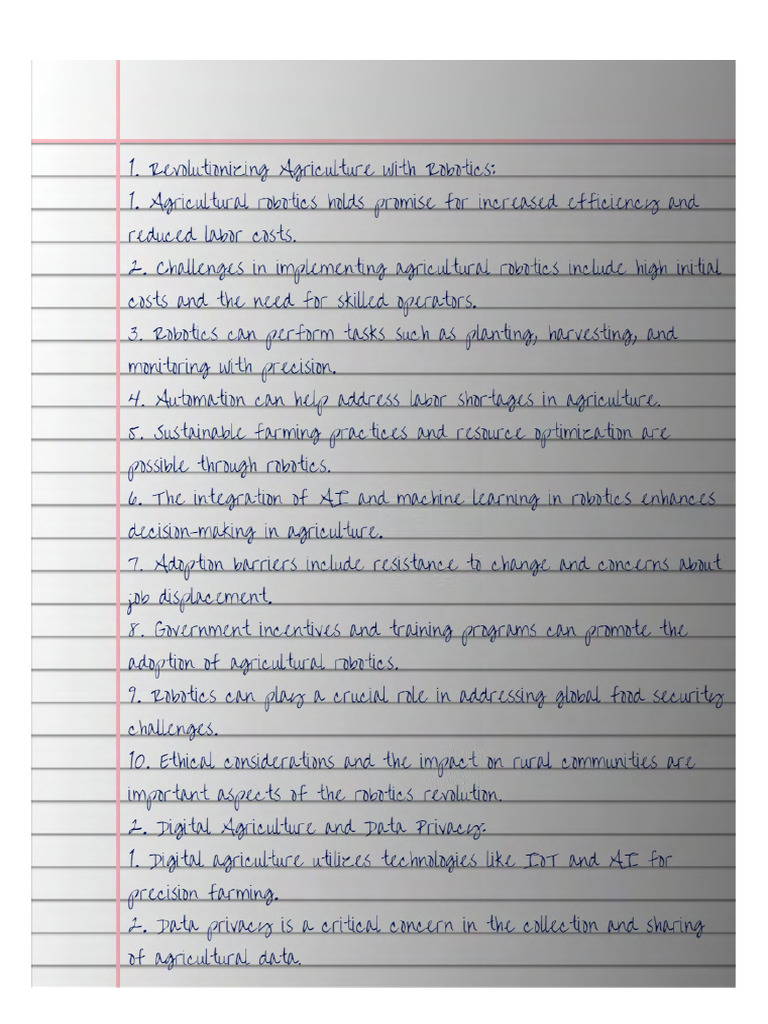 1. Revolutionizing Agriculture with Robotics:
1. Agricultural robotics holds promise for increased efficiency and
reduced labor costs.
2. Challenges in implementing agricultural robotics include high initial
costs and the need for skilled operators.
3. Robotics can perform tasks such as planting, harvesting, and
monitoring with precision.
4. Automation can help address labor shortages in agriculture.
5. Sustainable farming practices and resource optimization are
possible through robotics.
6. The integration of AI and machine learning in robotics enhances
decision-making in agriculture.
7. Adoption barriers include resistance to change and concerns about
job displacement.
8. Government incentives and training programs can promote the
adoption of agricultural robotics.
9. Robotics can play a crucial role in addressing global food security
challenges.
10. Ethical considerations and the impact on rural communities are
important aspects of the robotics revolution.
2. Digital Agriculture and Data Privacy:
1. Digital agriculture utilizes technologies like IoT and AI for
precision farming.
2. Data privacy is a critical concern in the collection and sharing
of agricultural data.